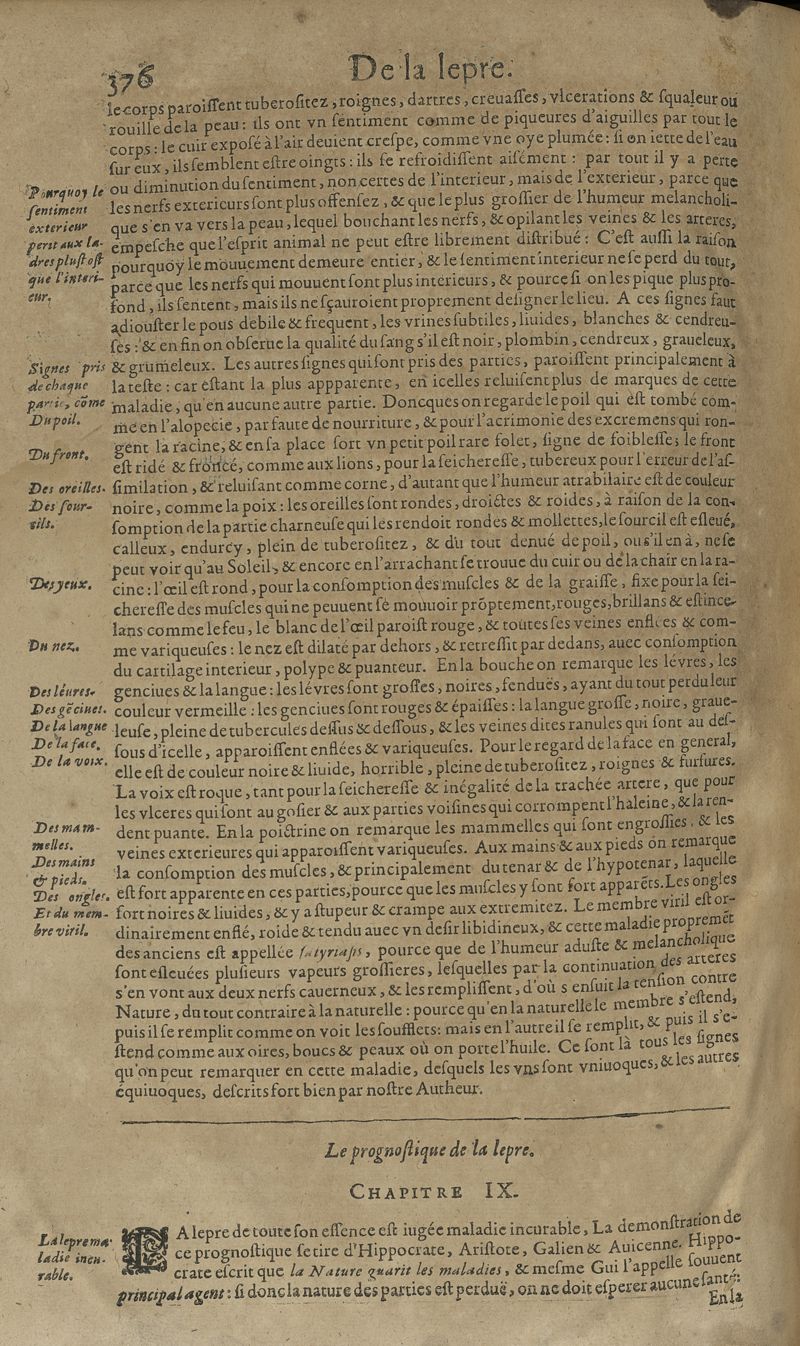 376
De la lepre.
le corps paroiſſent tuberoſitez, roignes, dartres, creuaſſes, vlcerations & ſqualeur ou
rouille de la peau: ils ont vn ſentiment comme de piqueures d'aiguilles par tout le
corps: le cuir expoſé à l'air deuient creſpe, comme vne oye plumée: ſi on iette de l'eau
ſur eux, ils ſemblent eſtre oingts: ils ſe refroidiſſent aiſément: par tout il y a perte
Pourquoy le
ſentiment
exterieur
pert aux la-
dres pluſtoſt
que l'interi-
eur.
ou diminution du ſentiment, non certes de l'interieur, mais de l'exterieur, parce que
les nerfs exterieurs ſont plus offenſez, & que le plus groſſier de l'humeur melancholi-
que s'en va vers la peau, lequel bouchant les nerfs, & opilant les veines & les arteres,
empeſche que l'eſprit animal ne peut eſtre librement diſtribué: C'eſt auſſi la raiſon
pourquoy le mouuement demeure entier, & le ſentiment interieur ne ſe perd du tout,
parce que les nerfs qui mouuent ſont plus interieurs, & pource ſi on les pique plus pro-
fond, ils ſentent, mais ils ne ſçauroient proprement deſigner le lieu. A ces ſignes faut
adiouſter le pous debile & frequent, les vrines ſubtiles, liuides, blanches & cendreu-
ſes: & en fin on obſerue la qualité du ſang s'il eſt noir, plombin, cendreux, graueleux,
Signes pris
de chaque
partie, cõme
Du poil.
& grumeleux. Les autres ſignes qui ſont pris des parties, paroiſſent principalement à
la teſte: car eſtant la plus appparente, en icelles reluiſent plus de marques de cette
maladie, qu'en aucune autre partie. Doncques on regarde le poil qui eſt tombé com-
me en l'alopecie, par faute de nourriture, & pour l'acrimonie des excremens qui ron-
gent la racine, & en ſa place ſort vn petit poil rare folet, ſigne de foibleſſe; le front
Du front.
eſt ridé & froncé, comme aux lions, pour la ſeichereſſe, tubereux pour l'erreur de l'aſ-
Des oreilles.
ſimilation, & reluiſant comme corne, d'autant que l'humeur atrabilaire eſt de couleur
Des four-
cils.
noire, comme la poix: les oreilles ſont rondes, droictes & roides, à raiſon de la con-
ſomption de la partie charneuſe qui les rendoit rondes & mollettes, le ſourcil eſt eſleué,
calleux, endurcy, plein de tuberoſitez, & du tout denué de poil, ou s'il en à, ne ſe
peut voir qu'au Soleil, & encore en l'arrachant ſe trouue du cuir ou de la chair en la ra-
Des yeux.
cine: l'œil eſt rond, pour la conſomption des muſcles & de la graiſſe, fixe pour la ſei-
chereſſe des muſcles qui ne peuuent ſe mouuoir prõptement, rouges, brillans & eſtince-
lans comme le feu, le blanc de l'œil paroiſt rouge, & toutes ſes veines enflées & com-
Du nez.
me variqueuſes: le nez eſt dilaté par dehors, & retreſſit par dedans, auec conſomption
du cartilage interieur, polype & puanteur. En la bouche on remarque les lévres, les
Des lèures.
genciues & la langue: les lévres ſont groſſes, noires, fenduës, ayant du tout perdu leur
Des gẽciues.
couleur vermeille: les genciues ſont rouges & épaiſſes: la langue groſſe, noire, graue-
De la langue
leuſe, pleine de tubercules deſſus & deſſous, & les veines dites ranules qui ſont au deſ-
De la face.
ſous d'icelle, apparoiſſent enflées & variqueuſes. Pour le regard de la face en general,
De la voix.
elle eſt de couleur noire & liuide, horrible, pleine de tuberoſitez, roignes & furfures.
La voix eſt roque, tant pour la ſeichereſſe & inégalité de la trachée artere, que pour
les vlceres qui ſont au goſier & aux parties voiſines qui corrompent l'haleine, & la ren-
Des mam-
melles.
dent puante. En la poictrine on remarque les mammelles qui ſont engroſſies, & les
veines exterieures qui apparoiſſent variqueuſes. Aux mains & aux pieds on remarque
Des mains
& pieds.
la conſomption des muſcles, & principalement du tenar & de l'hypotenar, laquelle
Des ongles.
eſt fort apparente en ces parties, pource que les muſcles y ſont fort apparẽts. Les ongles
Et du mem-
bre viril.
ſort noires & liuides, & y a ſtupeur & crampe aux extremitez. Le membre viril eſt or-
dinairement enflé, roide & tendu auec vn deſir libidineux, & cette maladie propremẽt
des anciens eſt appellée ſatyriaſis, pource que de l'humeur aduſte & melancholique
ſont eſleuées pluſieurs vapeurs groſſieres, leſquelles par la continuation des arteres
s'en vont aux deux nerfs cauerneux, & les rempliſſent, d'où s enſuit la tenſion contre
Nature, du tout contraire à la naturelle: pource qu'en la naturelle le membre s'eſtend,
puis il ſe remplit comme on voit les ſoufflets: mais en l'autre il ſe remplit, & puis il s'e-
ſtend comme aux oires, boucs & peaux où on porte l'huile. Ce ſont là tous les ſignes
qu'on peut remarquer en cette maladie, deſquels les vns ſont vniuoques, & les autres
équiuoques, deſcrits fort bien par noſtre Autheur.
Le prognoſtique de la lepre.
CHAPITRE IX.
La lepre ma-
ladie incu-
rable.
LA lepre de toute ſon eſſence eſt iugée maladie incurable, La demonſtration de
ce prognoſtique ſe tire d'Hippocrate, Ariſtote, Galien & Auicenne. Hippo-
crate eſcrit que la Nature guarit les maladies, & meſme Gui l'appelle ſouuent
principal agent: ſi donc la nature des parties eſt perduë, on ne doit eſperer aucune ſanté.
En la